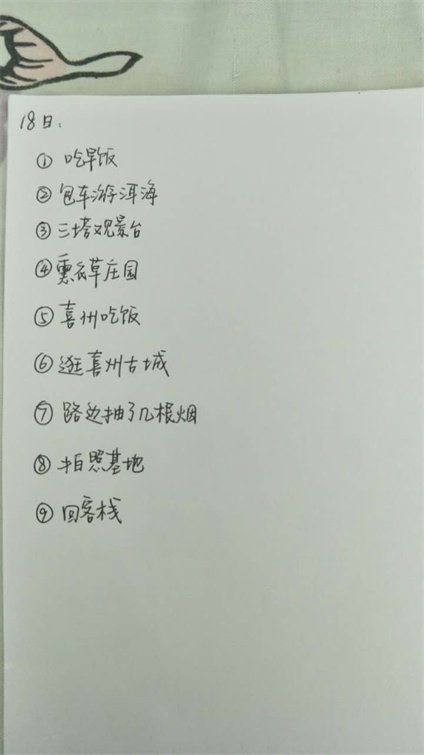 18日:
① 吃早饭
② 包车游洱海
③ 三塔观景台
④ 熏衣草庄园
⑤ 喜州吃饭
⑥ 逛喜州古城
⑦ 路边抽了几根烟
⑧ 拍照基地
⑨ 回客栈